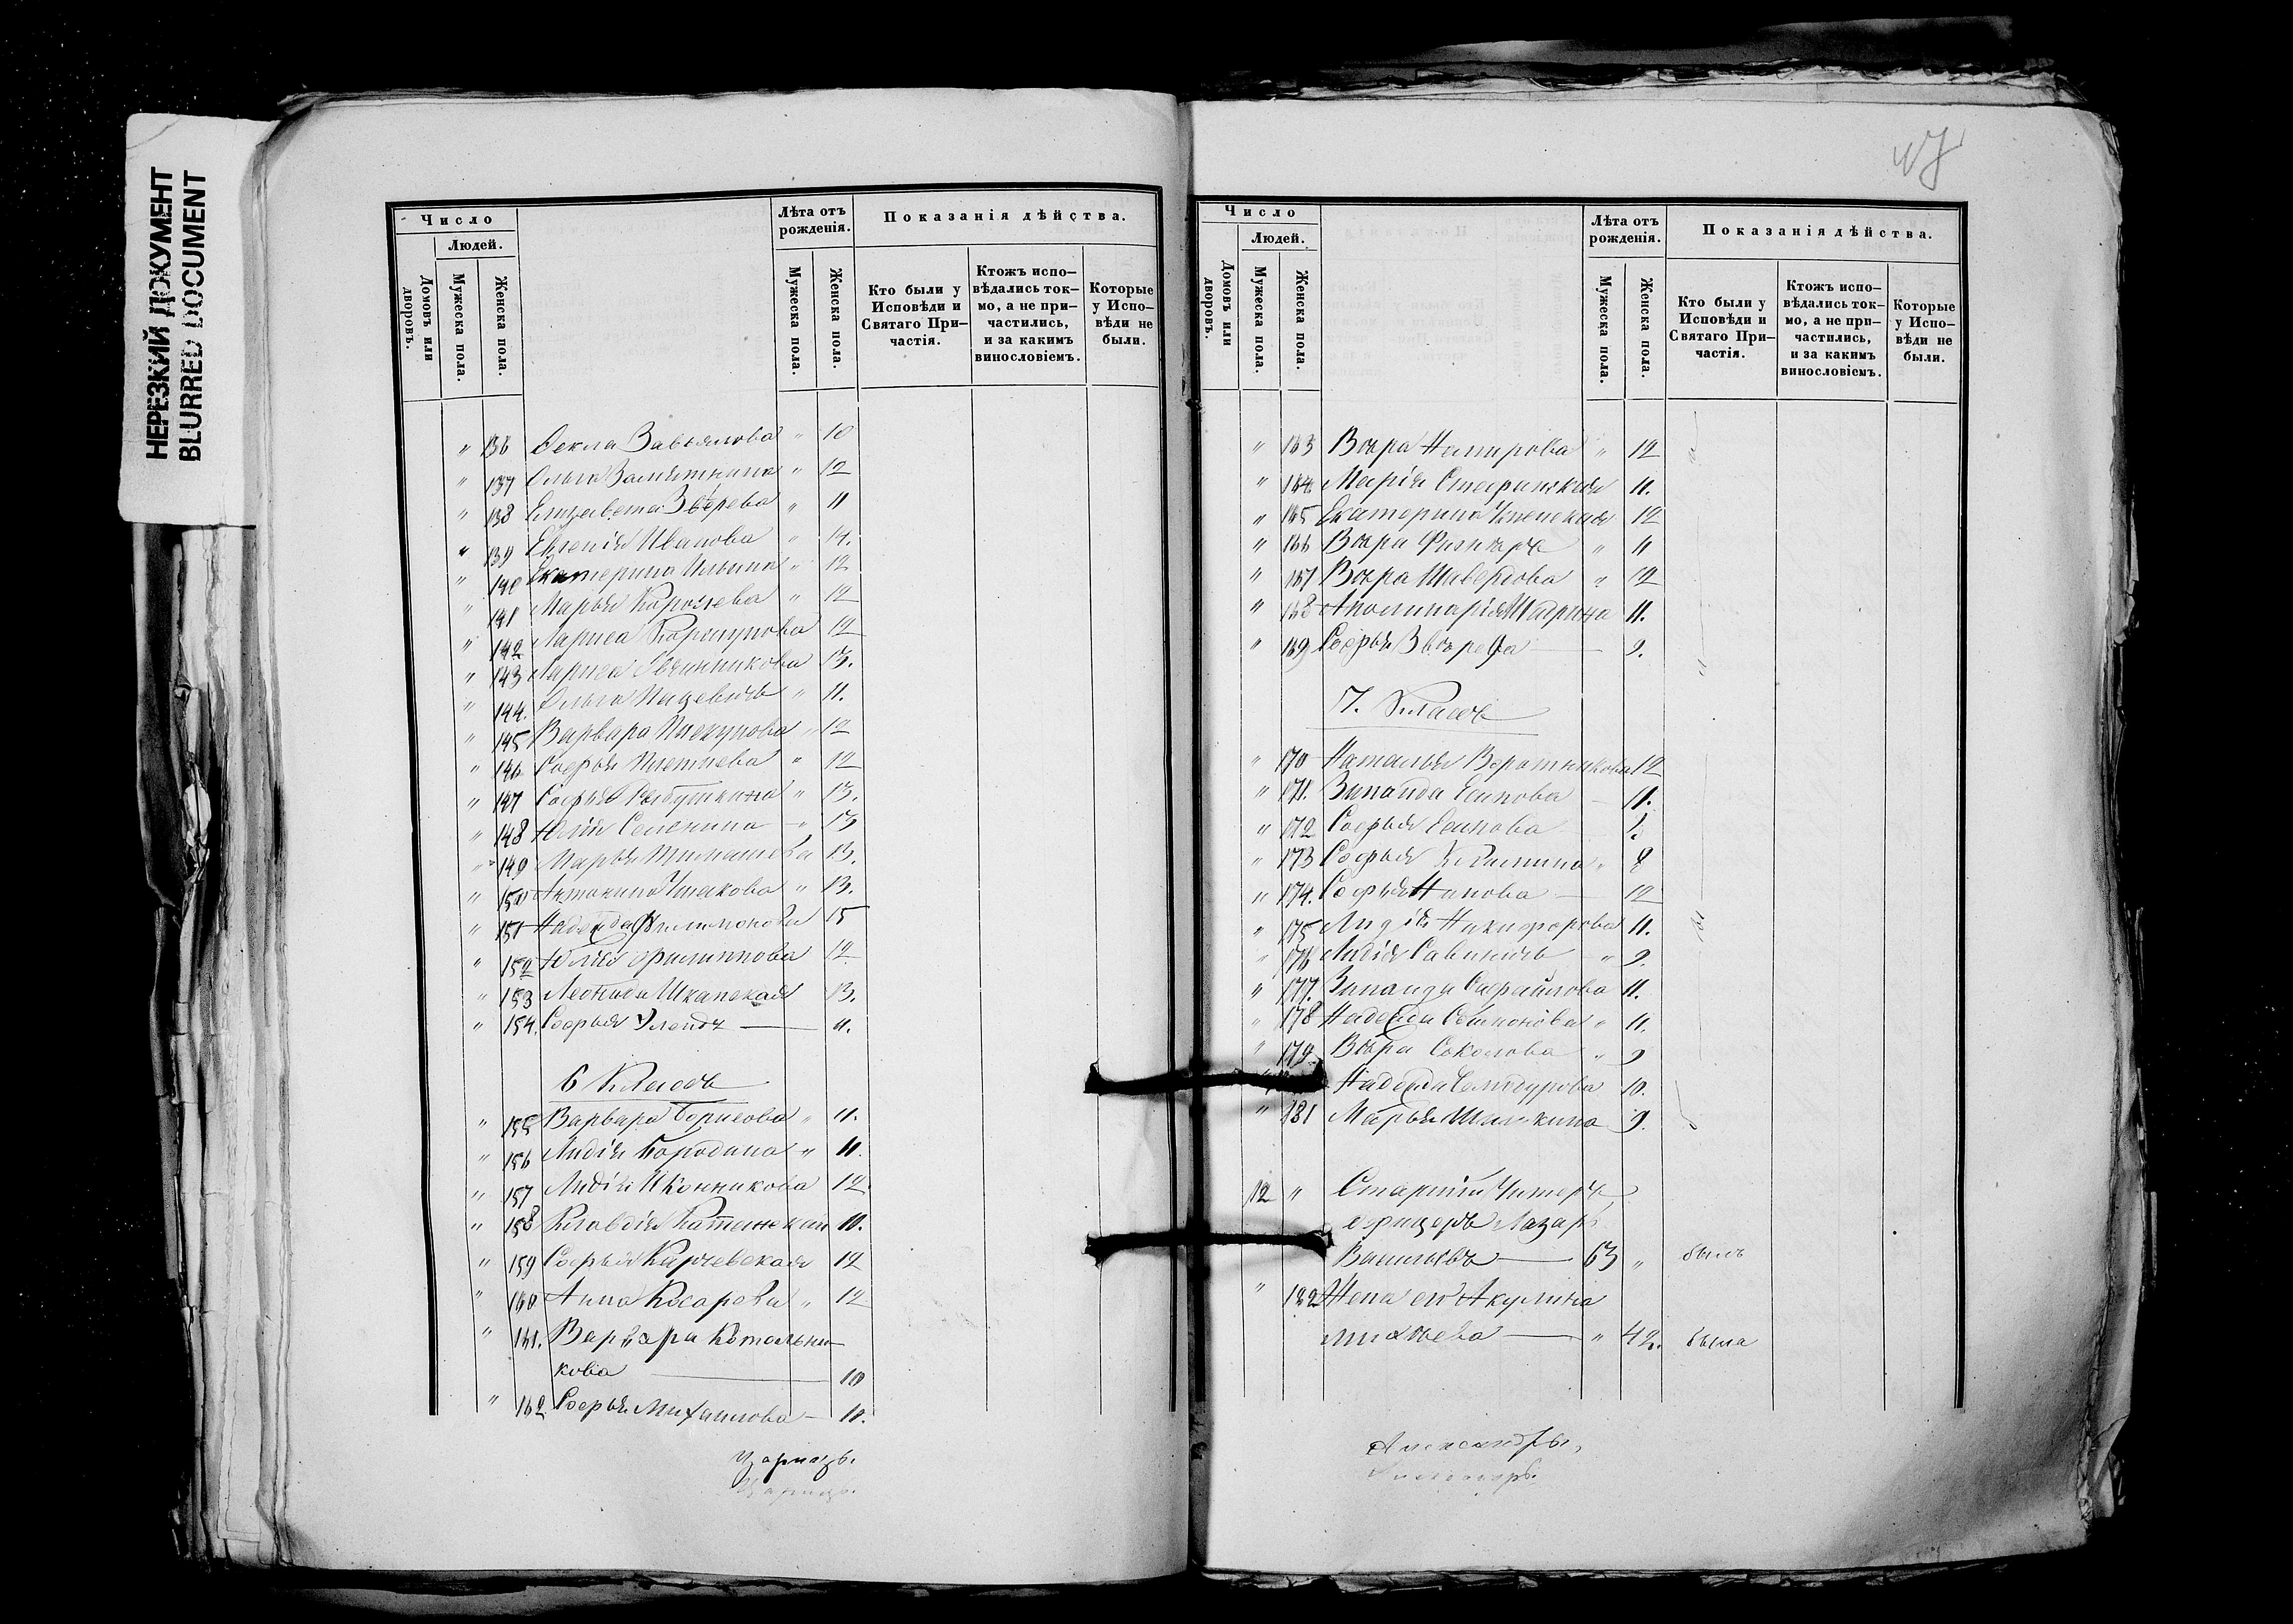 НЕРЕЗКИЙ ДОКУМЕНТ
BLURRED DOCUMENT
47
Число
Людей.
Домовъ или дворовъ.
Мужеска пола.
Женска пола.
Лѣта отъ рожденія.
Мужеска пола.
Женска пола.
Показанія дѣйства.
Кто были у Исповѣди и Святаго Причастія.
Ктожъ исповѣдались токмо, а не причастились, и за какимъ винословіемъ.
Которые у Исповѣди не были.
" 136 Ѳекла Завьялова " 10
" 137 Ольга Замятнина " 12
" 138 Елизавета Звѣрева " 11
" 139 Евгенія Иванова " 14.
" 140 Екатерина Ильина " 12
" 141 Марья Королева " 12
" 142 Лариса Коршунова 12
" 143 Лариса 13.
" 144. Ольга " 11.
" 145 Варвара Пискунова " 12
" 146 Софья Плетнева " 12
" 147 Софья Рыбушкина " 13.
" 148 Юлія Селенина " 13
" 149 Марья Тимашева 13.
" 150 Антонина Ушакова " 13.
" 151 Надежда Филимонова 15
" 152 Юлія Филиппова 12
" 153 Леонида Шкапская 13.
" 154. Софья 11.
6 Классъ
" 155 Варвара Борисова " 11.
" 156 Лидія Бородина " 11.
" 157 Лидія Иконникова 12.
" 158 Клавдія Катанская 10.
" 159 Софья Карчевская 12
" 160 Анна Косарева " 12
" 161. Варвара Котельни-
кова 10
" 162 Софья Михайлова 10.
Царицъ.
Число
Людей.
Домовъ или дворовъ.
Мужеска пола.
Женска пола.
Лѣта отъ рожденія.
Мужеска пола.
Женска пола.
Показанія дѣйства.
Кто были у Исповѣди и Святаго Причастія.
Ктожъ исповѣдались токмо, а не причастились, и за какимъ винословіемъ.
Которые у Исповѣди не были.
" 163 Вѣра " 12
" 164. Марія 11.
" 165 Екатерина 12
" 166 Вѣра " 11
" 167 Вѣра Шавердова " 12
" 168 Аполинарія Шадрина 11.
" 169 Софья Звѣрева 9.
7. Классъ
" 170 Наталья Веротникова 12
" 171. Зинаида Есипова 11.
" 172 Софья Есипова
" 173 Софья " 8
" 174. Софья Панова 12
" 175 Лидія Никифорова 11.
" 176 Лидія Савиничъ " 9.
" 177. Зинаида 11.
" 178 Надежда " 11.
" 179. Вѣра Соколова " 9
Надежда 10.
" 181 Марья Шишкина 9.
12 " Старшій Унтеръ
офицеръ Лазарь
Васильевъ 63 " былъ
" 182 Жена его Акулина
Михѣева " 42. была
Александры,